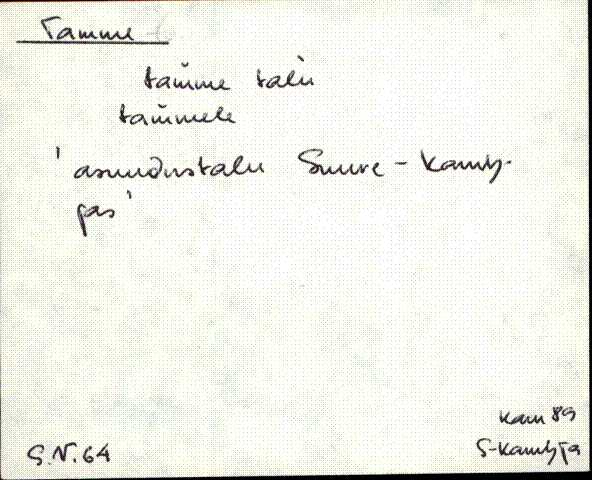 Tamme
tam̆me talu̮
tam̆mele
'asundustalu Suure-Kamb-
jas'
Kam 89
S.N.64
S-Kambja